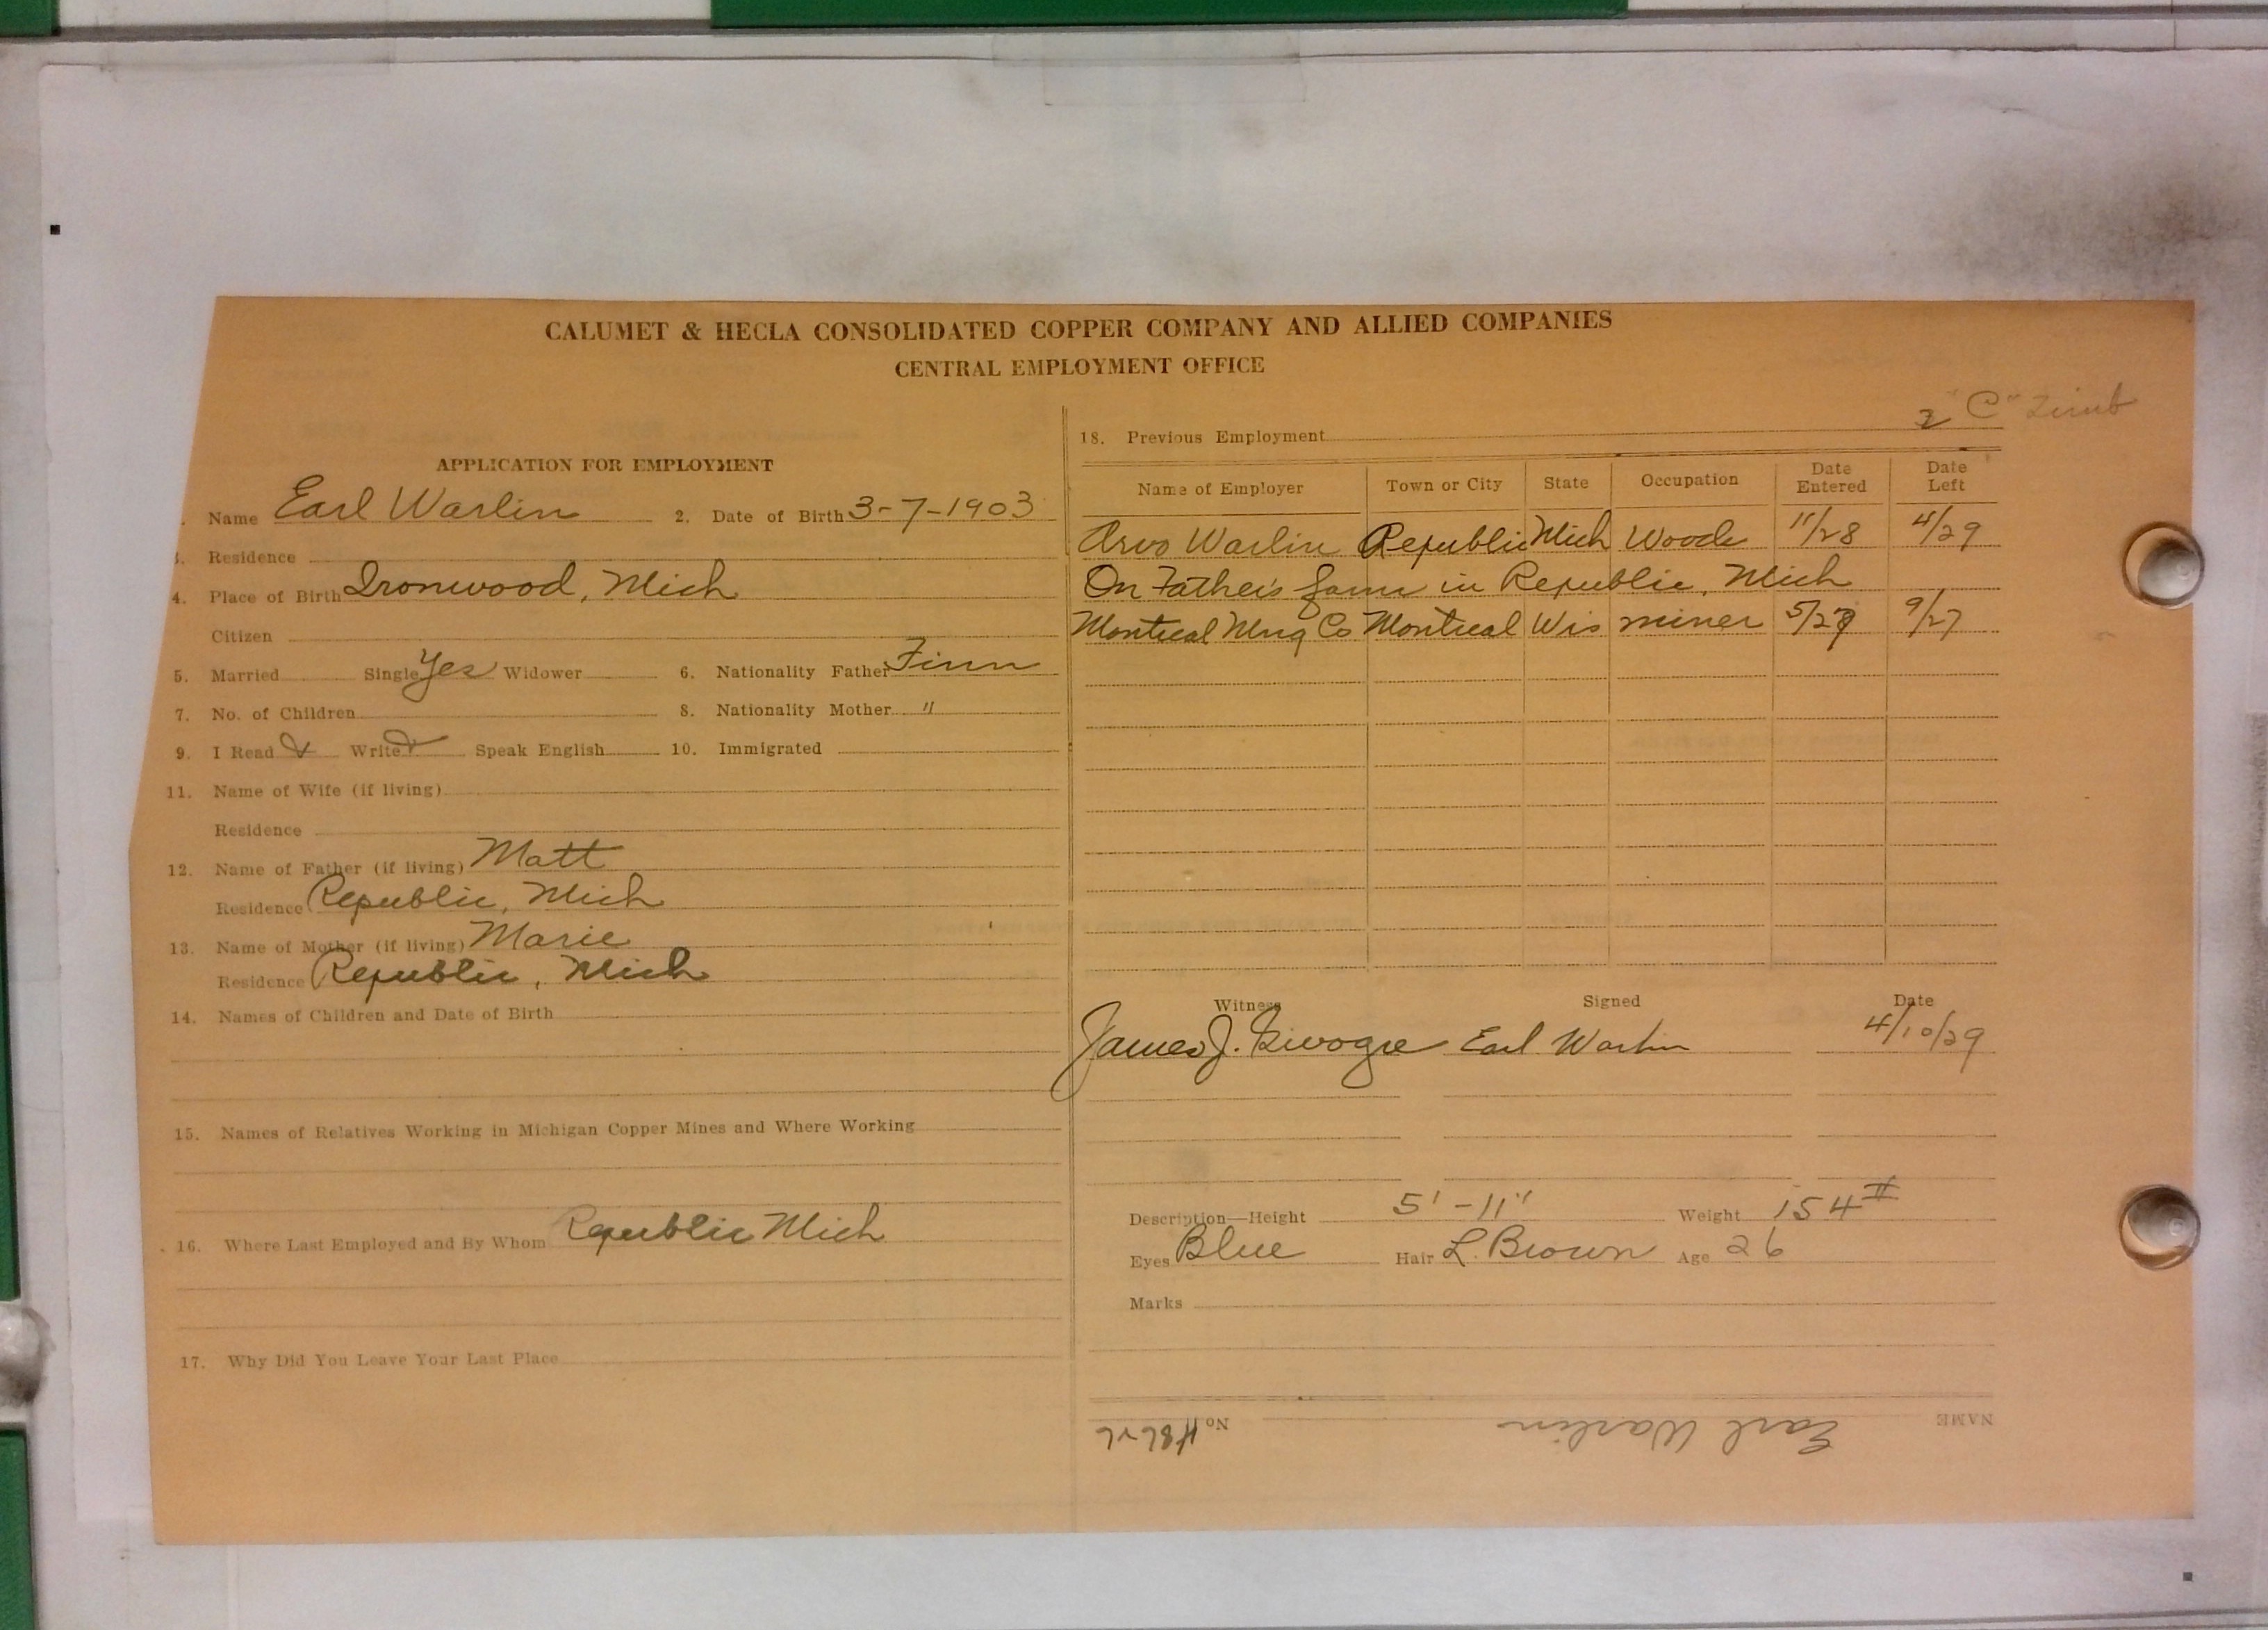 CALUMET & HECLA CONSOLIDATED COPPER COMPANY AND ALLIED COMPANIES
CENTRAL EMPLOYMENT OFFICE
APPLICATION FOR EMPLOYMENT
Name Earl Warlin 2. Date of Birth 3-7-1903
Residence
4. Place of Birth Ironwood, Mich
Citizen
5. Married Single Yes Widower 6. Nationality Father Finn
7. No. of Children 8. Nationality Mother "
9. I Read Write Speak English 10. Immigrated
11. Name of Wife (if living)
Residence
12. Name of Father (if living) Matt
Residence Republic, Mich
13. Name of Mother (if living) Marie
Residence Republic, Mich
14. Names of Children and Date of Birth
15. Names of Relatives Working in Michigan Copper Mines and Where Working
16. Where Last Employed and By Whom Republic Mich
17. Why Did You Leave Your Last Place
2 "C" Timb
18. Previous Employment
Name of Employer Town or City State Occupation Date Entered Date Left
Arvo Warlin Republic Mich Woods 11/28 4/29
On Father's farm in Republic, Mich
Montreal Mng Co Montreal Wis miner 5/27 9/27
Witness Signed Date
James J. Earl Warlin 4/10/29
Description—Height 5'-11" Weight 154#
Eyes Blue Hair L. Brown Age 26
Marks
NAME Earl Warlin No.